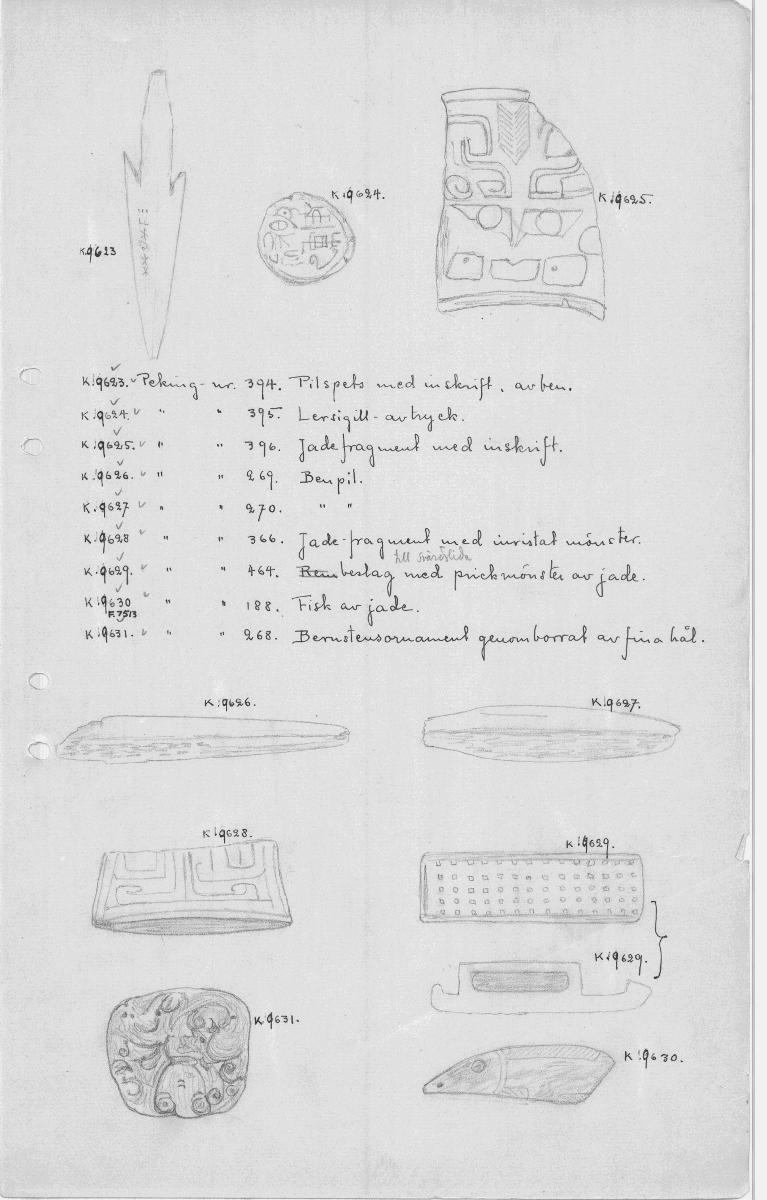 K.9624.
K.9625.
K.9623
K.9623. Peking-nr. 394. Pilspets med inskrift, av ben.
K.9624. " " 395. Lersigill-avtryck.
K.9625. " " 396. Jadefragment med inskrift.
K.9626. " " 269. Benpil.
K.9627 " " 270. " "
K.9628 " " 366. Jade-fragment med inristat mönster.
till svärdslida
K.9629. " " 464. Ben beslag med prickmönster av jade.
K.9630 " " 188. Fisk av jade.
F.7513
K.9631. " " 268. Bernstensornament genomborrat av fina hål.
K.9626.
K.9627.
K.9628.
K.9629.
K.9629.
K.9631.
K.9630.